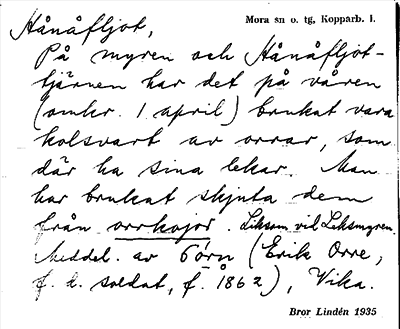 Hånåfljot,
Mora sn o. tg, Kopparb. l.
På myren och Hånåfljot-
tjärnen har det på våren
(omkr. 1 april) brukat vara
kolsvart av orrar, som
där ha sina lekar. Man
har brukat skjuta dem
från orrkojor. Liksom vid Leksmyren.
Meddel. av 6 (Erik Orre,
f. d. soldat, f. 1862), Vika.
Bror Lindén 1935